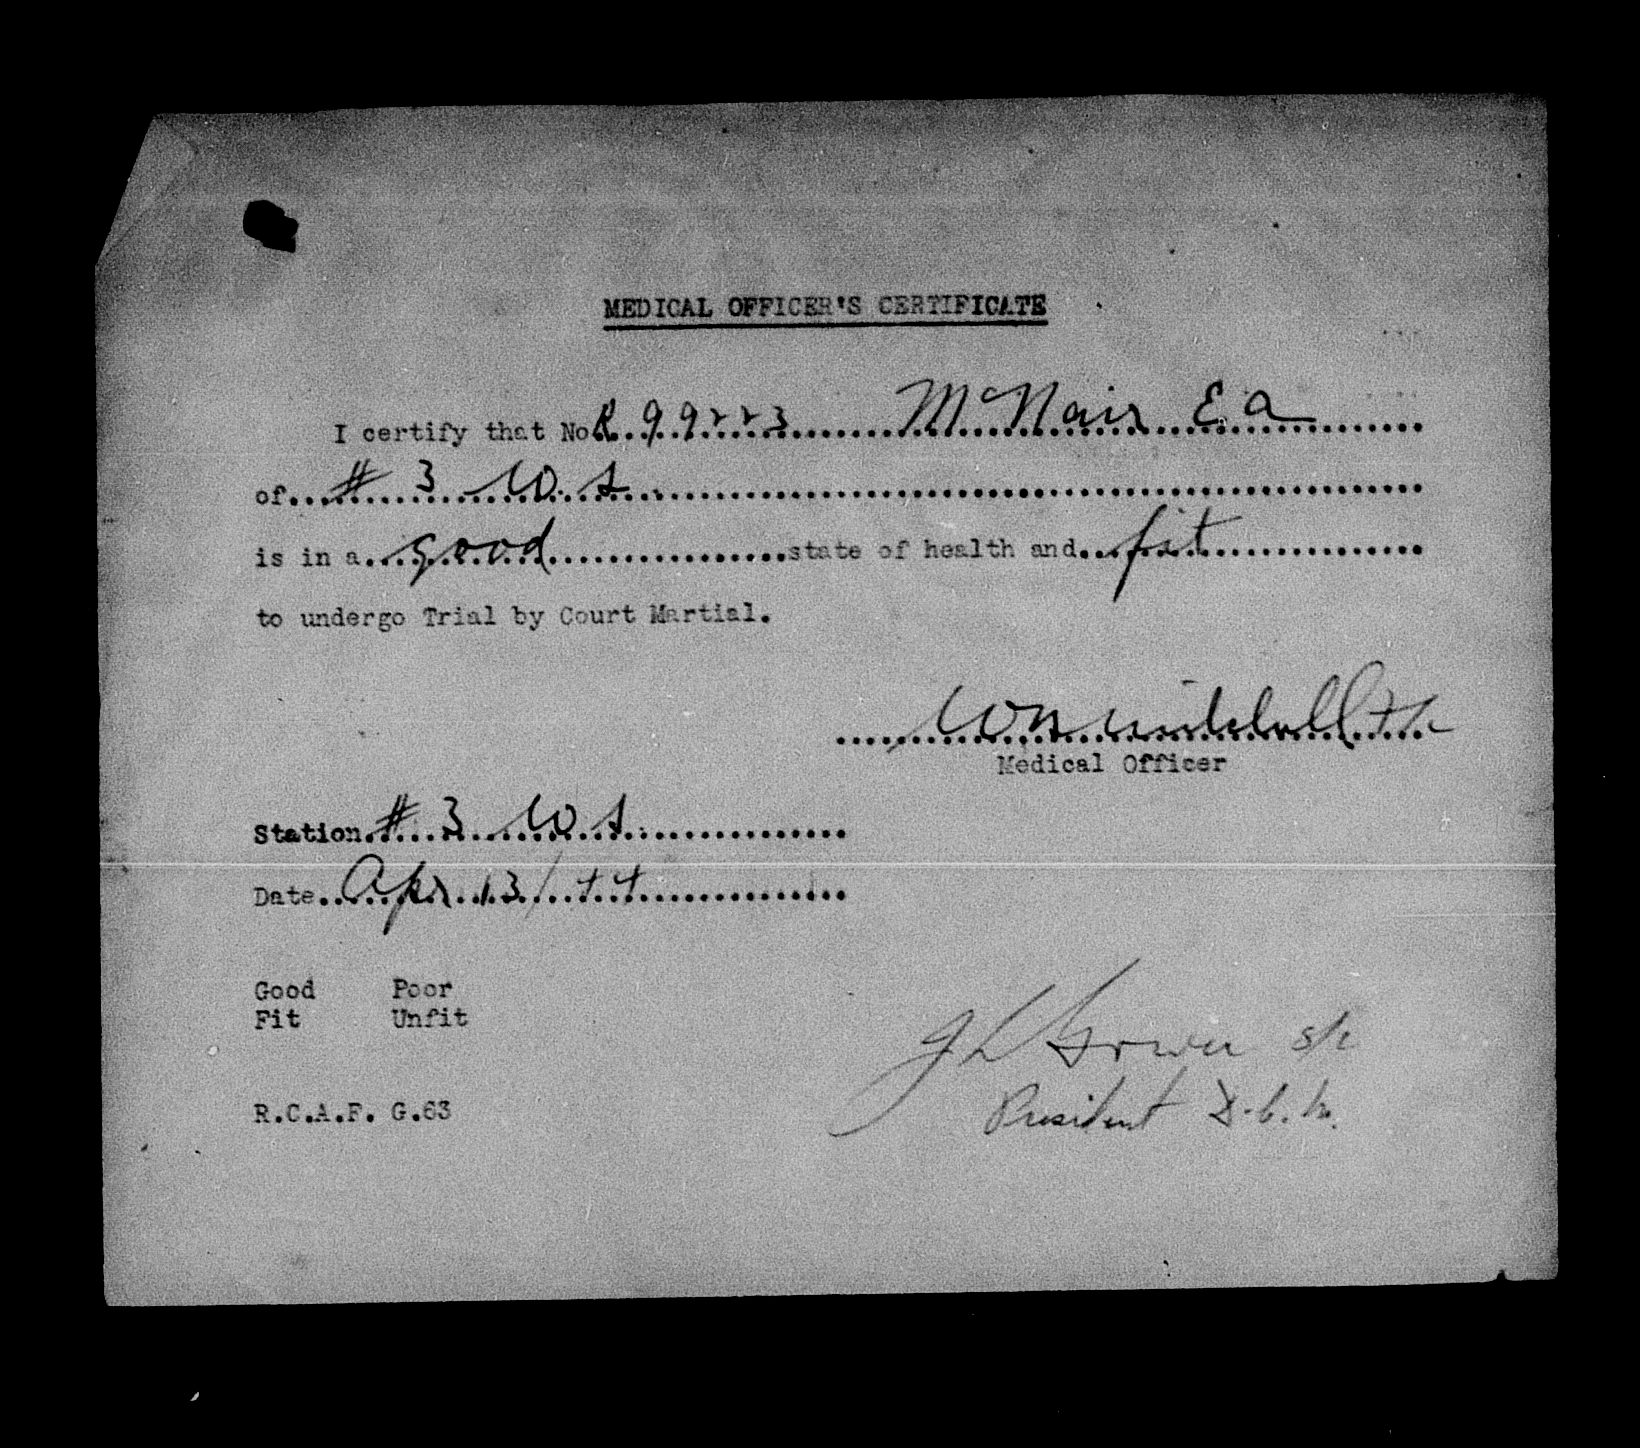 MEDICAL OFFICER'S CERTIFICATE
I certify that No. R 99223 McNair E A
of # 3 W S
is in a good state of health and fit
to undergo Trial by Court Martial.
Mitchell F/L
Medical Officer
Station # 3 W S
Date Apr 13/44
Good Poor
Fit Unfit
J L S/L
R.C.A.F. G.63 President D.C.M.